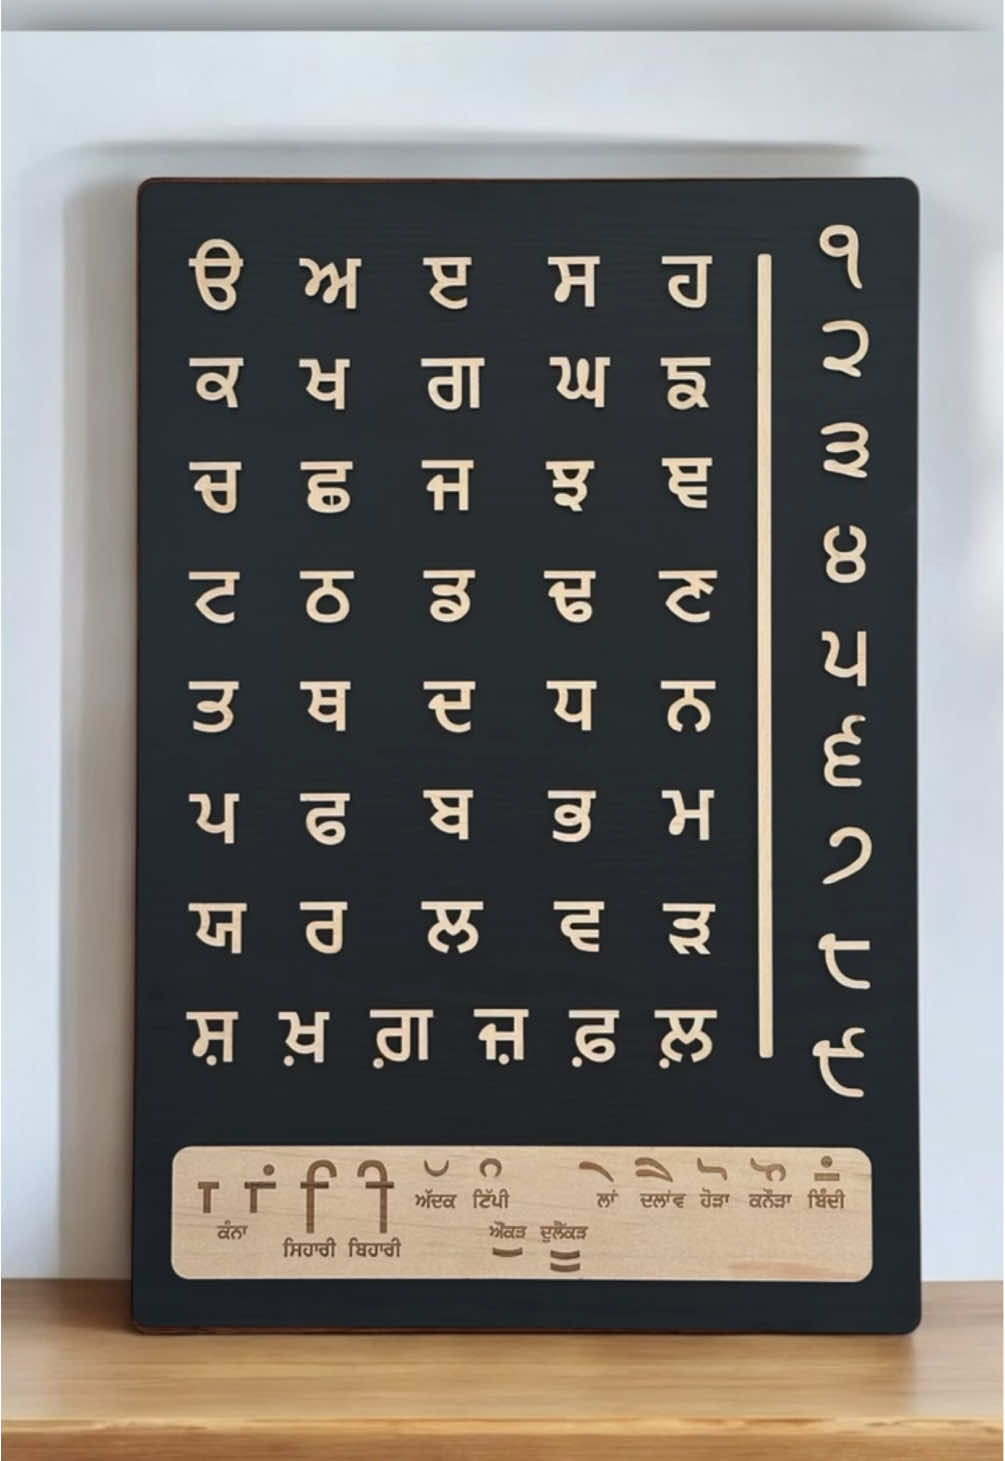 ੳ ਅ ੲ ਸ ਹ
ਕ ਖ ਗ ਘ ਙ
ਚ ਛ ਜ ਝ ਞ
ਟ ਠ ਡ ਢ ਣ
ਤ ਥ ਦ ਧ ਨ
ਪ ਫ ਬ ਭ ਮ
ਯ ਰ ਲ ਵ ੜ
ਸ਼ ਖ਼ ਗ਼ ਜ਼ ਫ਼ ਲ਼
੧
੨
੩
੪
੫
੬
੭
੮
੯
ਾ ਾਂ ਿ ੀ ੱ ੰ ੇ ੈ ੋ ੌ ਂ
ਅੱਦਕ ਟਿੱਪੀ ਲਾਂ ਦਲਾਂਵ ਹੋੜਾ ਕਨੌੜਾ ਬਿੰਦੀ
ਕੰਨਾ ਔਂਕੜ ਦੁਲੈਂਕੜ
ਸਿਹਾਰੀ ਬਿਹਾਰੀ ੁ ੂ